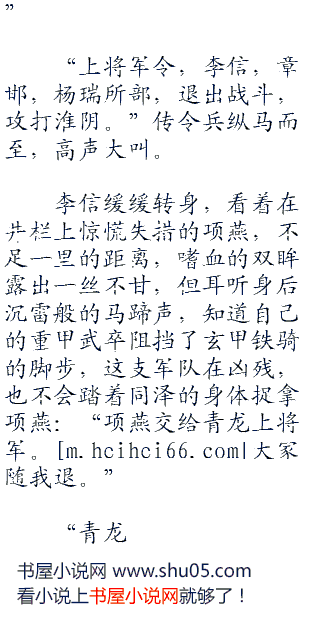 ”
“上将军令，李信，章
邯，杨瑞所部，退出战斗，
攻打淮阴。”传令兵纵马而
至，高声大叫。
李信缓缓转身，看着在
井栏上惊慌失措的项燕，不
足一里的距离，嗜血的双眸
露出一丝不甘，但耳听身后
沉雷般的马蹄声，知道自己
的重甲武卒阻挡了玄甲铁骑
的脚步，这支军队在凶残，
也不会踏着同泽的身体捉拿
项燕：“项燕交给青龙上将
军。[m.hcihci66.com|大冢
随我退。”
“青龙
书屋小说网 www.shu05.com
看小说上书屋小说网就够了！